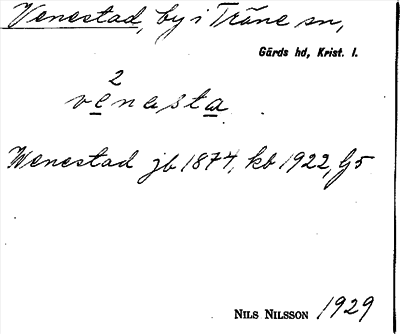 Venestad, by i Träne sn,
Gärds hd, Krist. l.
2
venesta
Wenestad jb 1874, kb 1922, G5
NILS NILSSON 1929